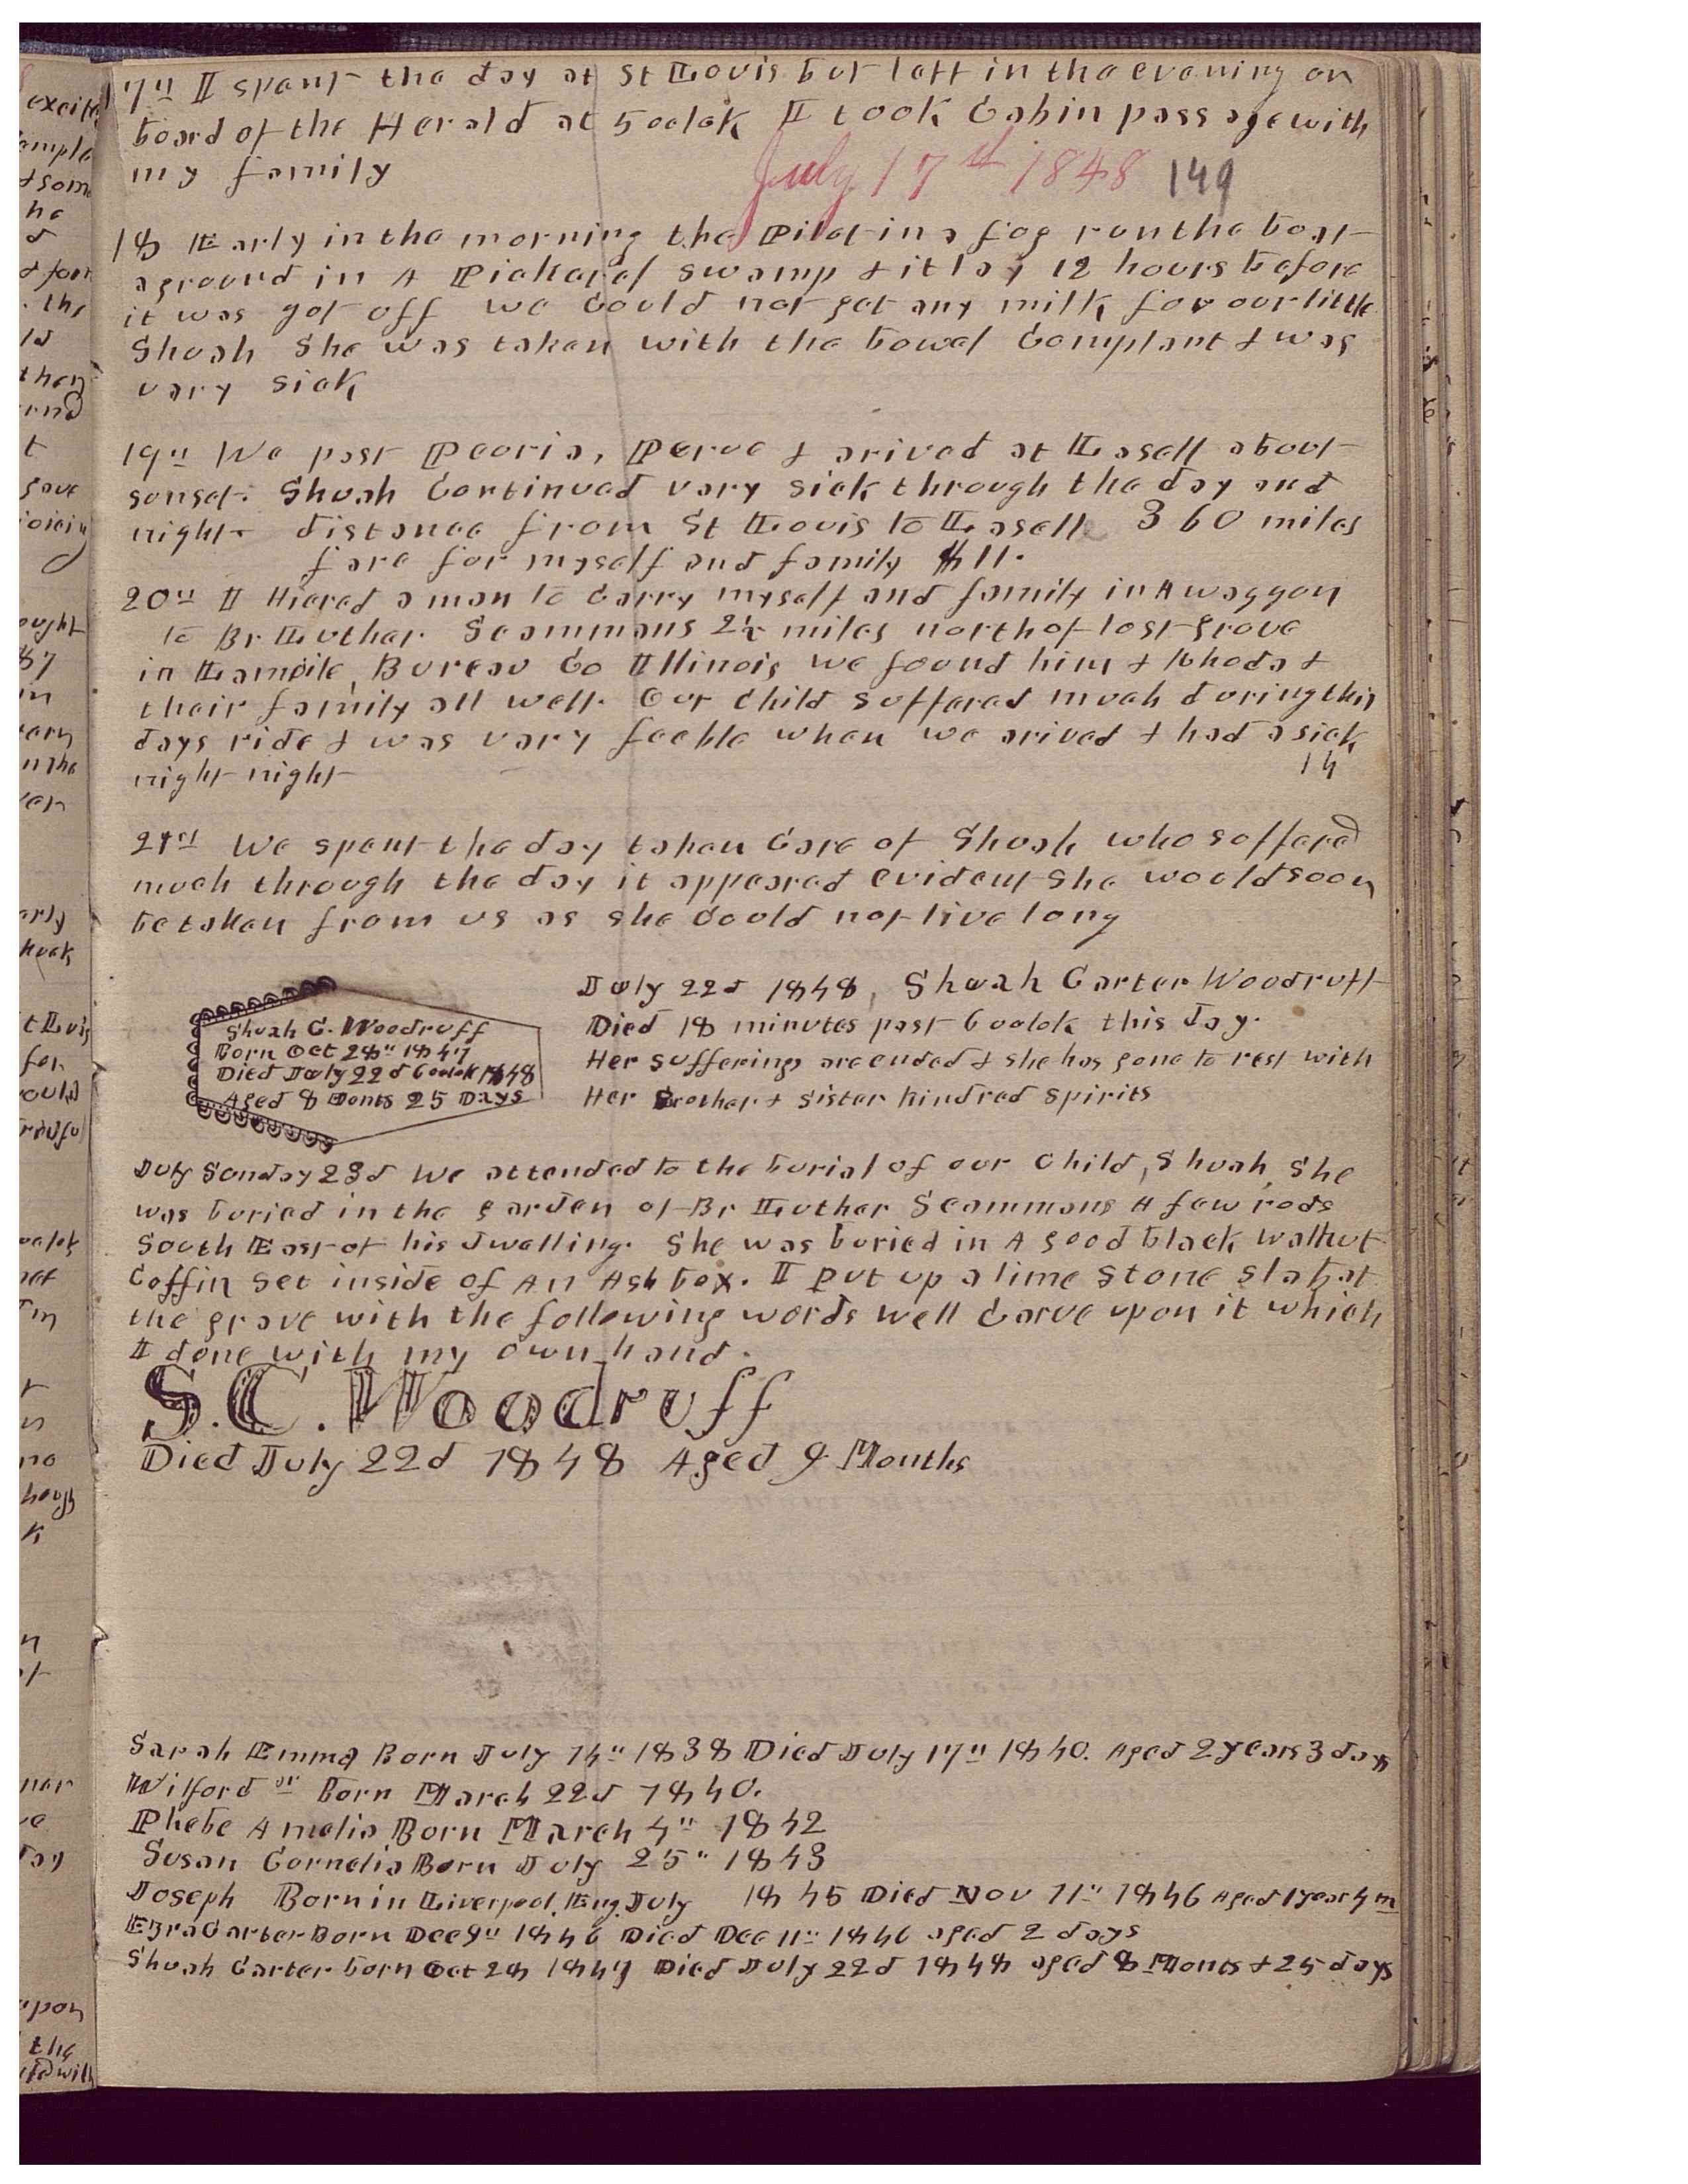 17th I spent the day at St Louis but left in the evening on
board of the Herald at 5 oclok I took Cabin passage with
my family
July 17th 1848 149
18 Early in the morning the Pilot in a fog run the boat
aground in A Pickarel swamp & it lay 12 hours before
it was got off we Could not get any milk for our little
Shuah She was taken with the bowel Complant & was
vary sick
19th We past Peoria, Perue & arived at Lasell about
sunset. Shuah Continued vary sick through the day and
night distance from St Louis to Lasell 360 miles
fare for myself and family $11.
20th I Hiered a man to Carry myself and family in A waggon
to Br Luther Scammans 2½ miles north of lost grove
in Lamoile, Bureau Co Illinois we found him & Rhoda &
their family all well. Our Child suffered much during this
days ride & was vary feeble when we arived & had a sick
14
night night
21st We spent the day taken Care of Shuah who suffered
much through the day it appeared evident she would soon
be taken from us as she Could not live long
July 22d 1848, Shuah Carter Woodruff
Died 18 minutes past 6 oclok this day.
Her sufferings are ended & she has gone to rest with
Her Brother & sister kindred spirits
Shuah C. Woodruff
Born Oct 28th 1847
Died July 22d 6 oclok 1848
Aged 8 Monts 25 Days
July Sunday 23d We attended to the burial of our Child, Shuah, She
was buried in the garden of Br Luther Scammans A few rods
South East of his dwelling. She was buried in A good black wallnut
Coffin set inside of An Ash box. I put up a lime stone slab at
the grave with the following words well Carve upon it which
I done with my own hand.
S.C. Woodruff
Died July 22d 1848 Aged 9 Months
Sarah Emma Born July 14th 1838 Died July 17th 1840. Aged 2 years 3 days
Wilford Born March 22d 1840.
Phebe Amelia Born March 4th 1842
Susan Cornelia Born July 25th 1843
Joseph Born in Liverpool, Eng. July 1845 Died Nov 11th 1846 Aged 1 year 4 m
Ezra Carter Born Dec 9th 1846 Died Dec 11th 1846 aged 2 days
Shuah Carter born Oct 28 1847 Died July 22d 1848 aged 8 Monts & 25 days